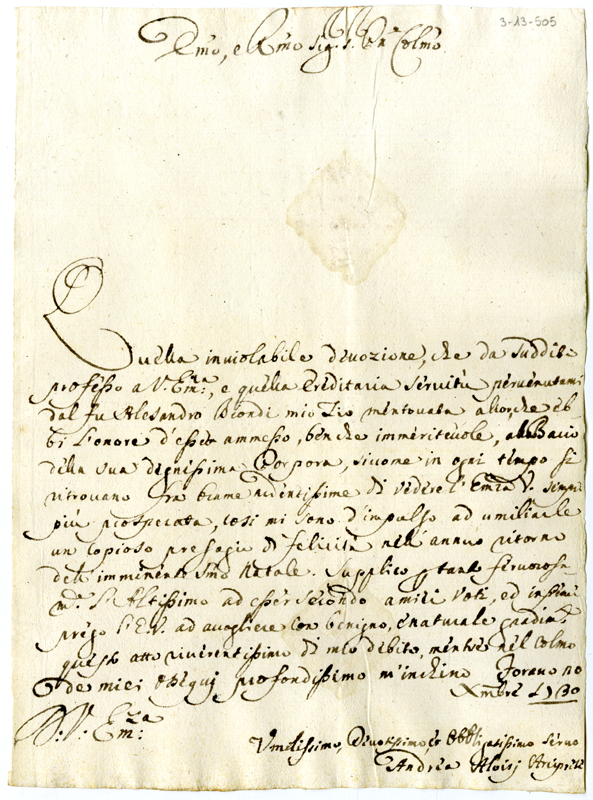 3-13-505
Emo, e Rmo Sig. S. Pne Colmo
Quella inviolabile divozione, che da Suddito
professo a V. Emza, e quella ereditaria servitù pervenutami
dal fu Alesandro Biondi mio Zio mentovata allor, che eb
bi l'onore d'esser ammesso, benche immeritevole, al Bacio
della sua degnissima Porpora, sicome in ogni tempo si
ritrovano fra brame ardentissime di vedere l'Emza V. sempre
più prosperata, così mi sono d'impulso ad umiliarle
un copioso presagio di felicità nell'annuo ritorno
dell'imminente Smo Natale. Supplico
S. Altissimo ad esser secondo a miei voti, ed insieme
prego l'E.V. ad accogliere con benigno, e naturale gradimto
questo atto riverentissimo di mio debito, mentre nel colmo
de miei ossequj profondissimo m'inchino Torano
Xmbre 1730
D. V. Emza
Umilissimo, Divotissimo, et Obbligatissimo Servo
Andrea Aloisj